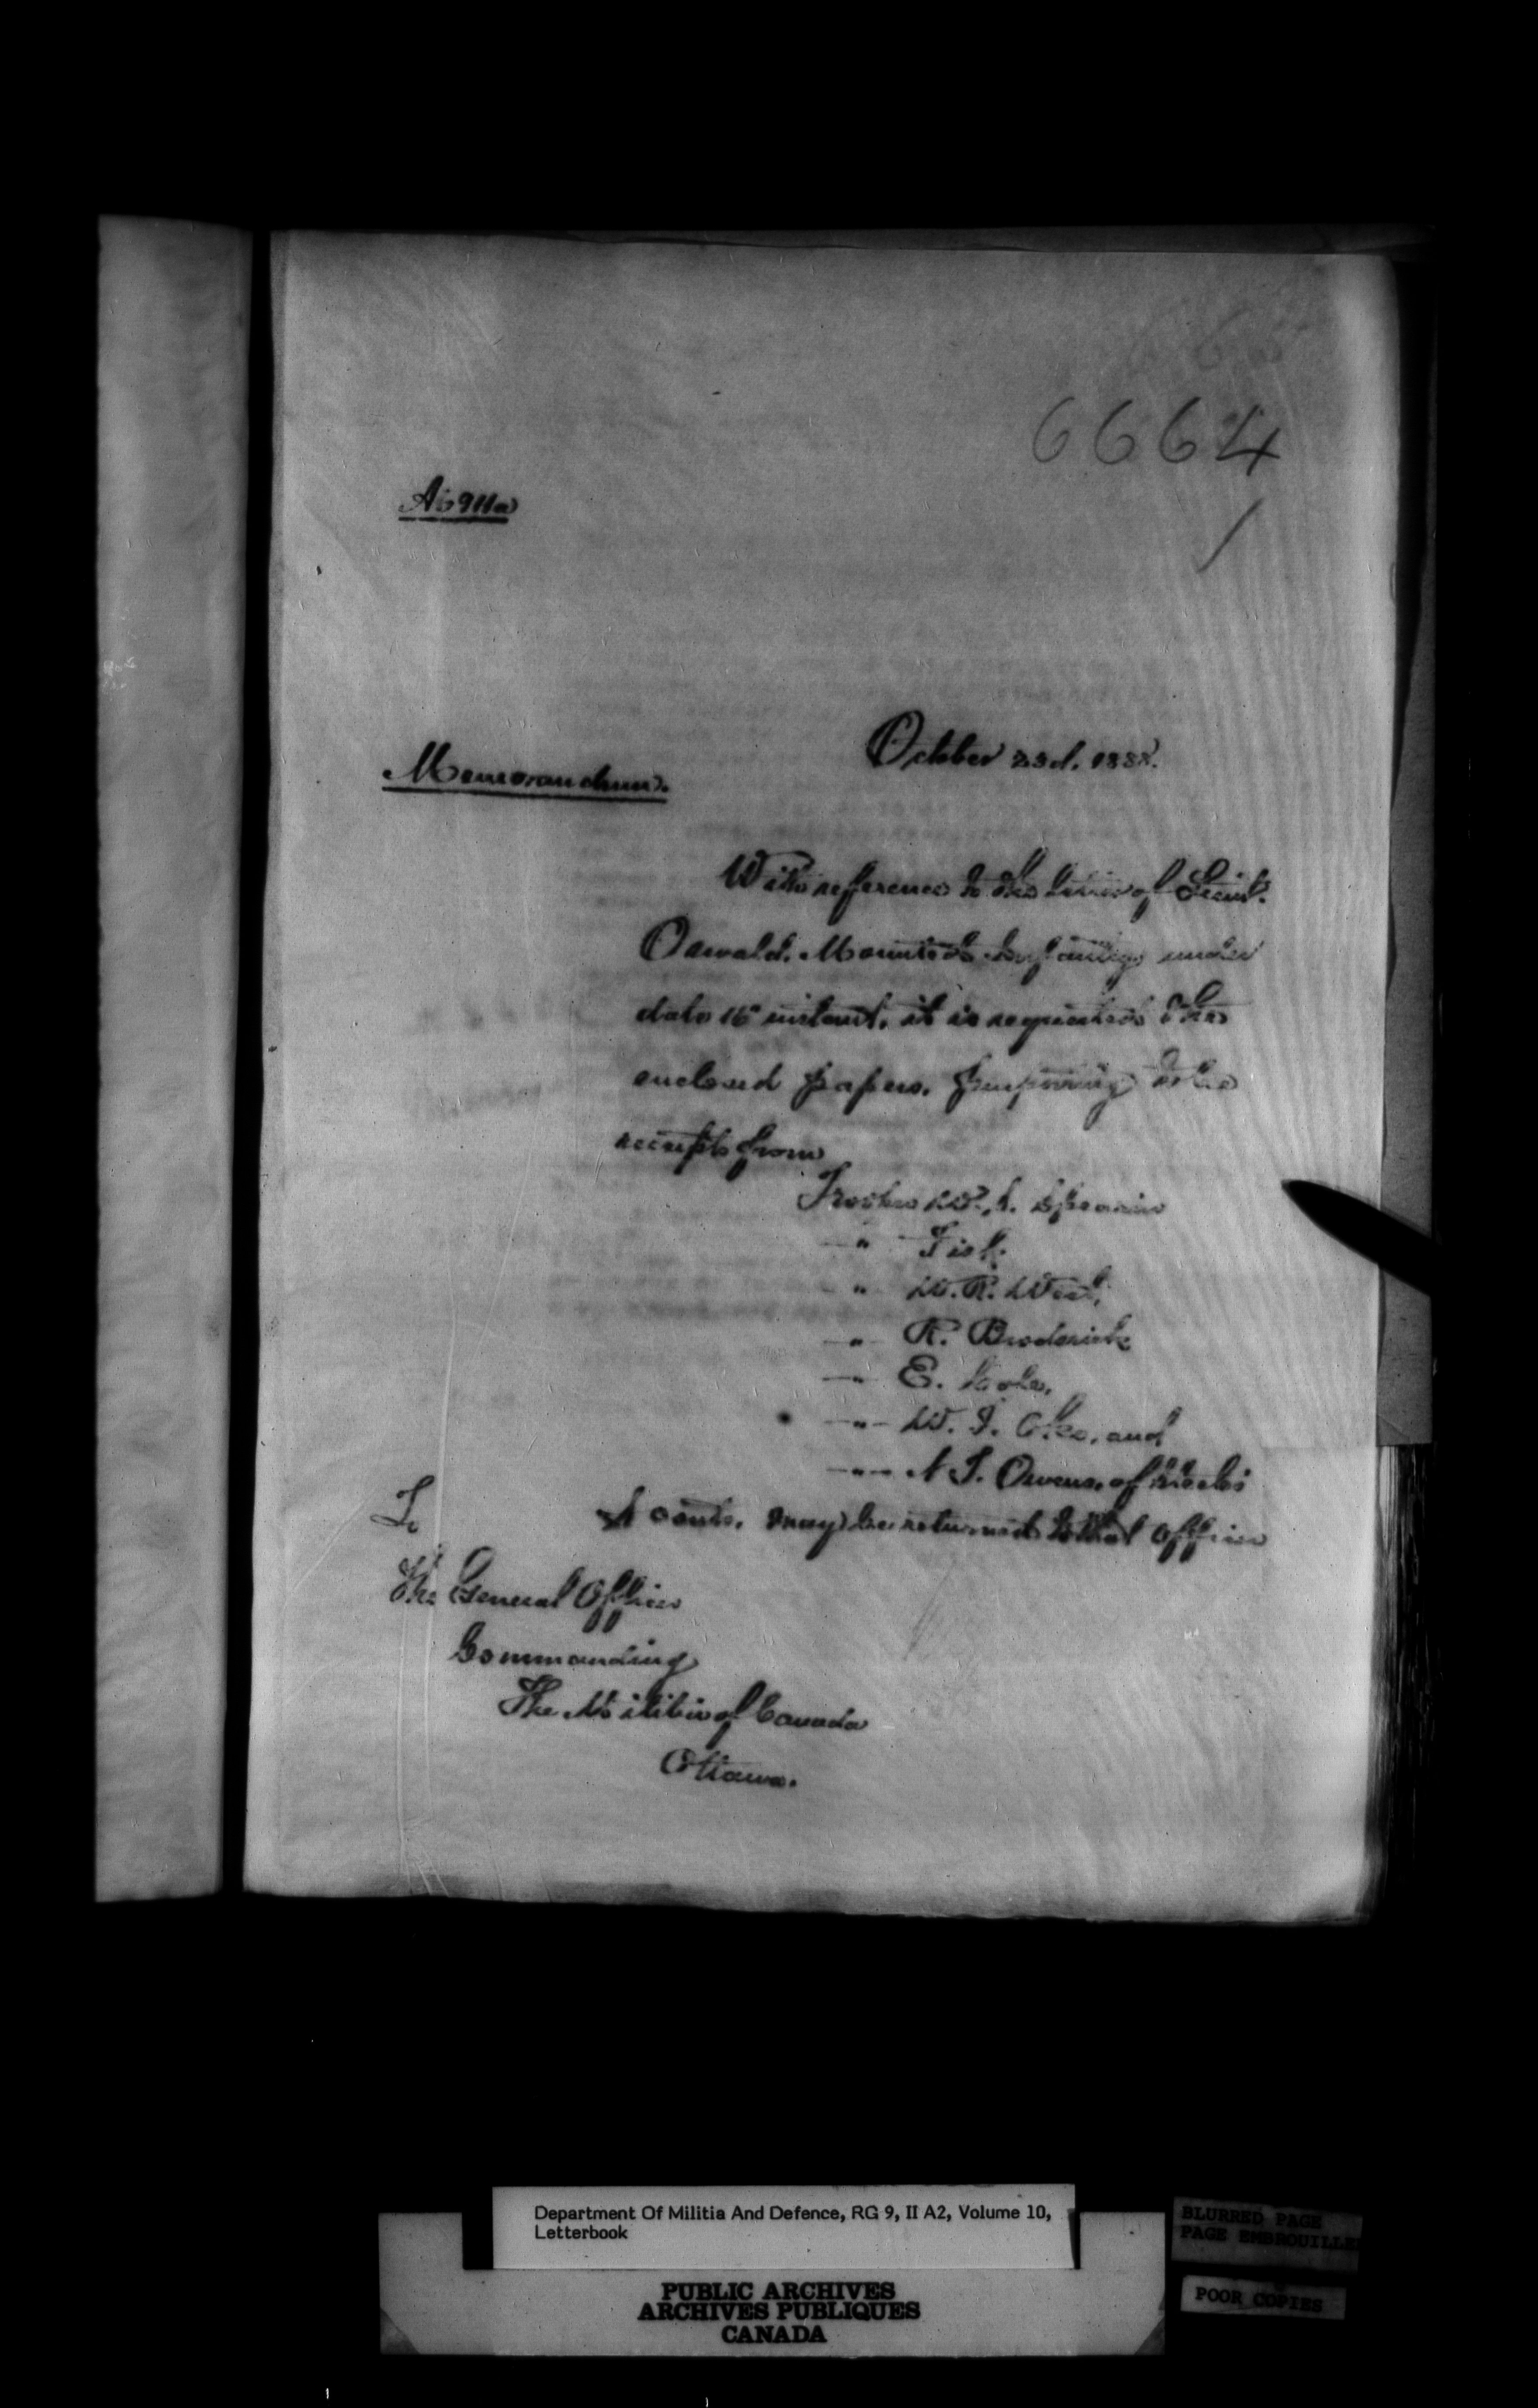 6664
A6911a
October 23d. 1888.
Memorandum.
With reference to the letter of Lieut.
Oswald, Mounted Infantry, under
date 16" instant, it is requested the
enclosed papers, purporting to be
receipts from
Trooper W. h. Spearin
" Fisk
" W. R. West,
" R. Broderick
" E. Cole,
" W. J. and
" N J. Owens, of
Scouts, may be returned to that Officer
To
The General Officer
Commanding
The Militia of Canada
Ottawa.
Department Of Militia And Defence, RG 9, II A2, Volume 10,
Letterbook
BLURRED PAGE
PAGE EMBROUILLE
POOR COPIES
PUBLIC ARCHIVES
ARCHIVES PUBLIQUES
CANADA